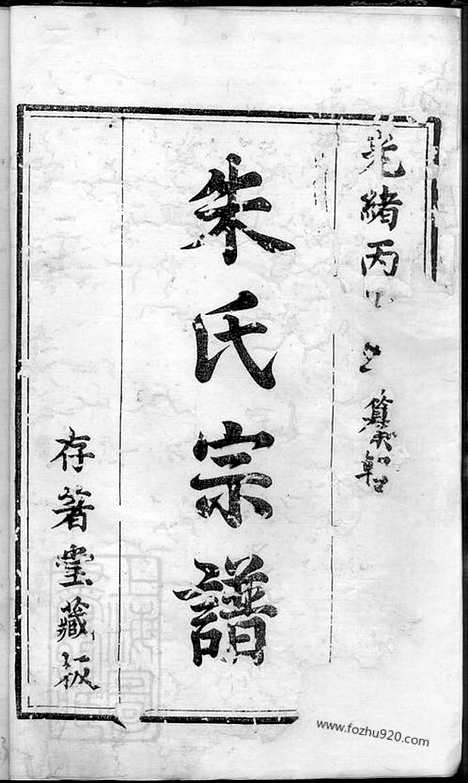 光緒丙
朱氏宗譜
存箸堂藏板
www.fozhu920.com